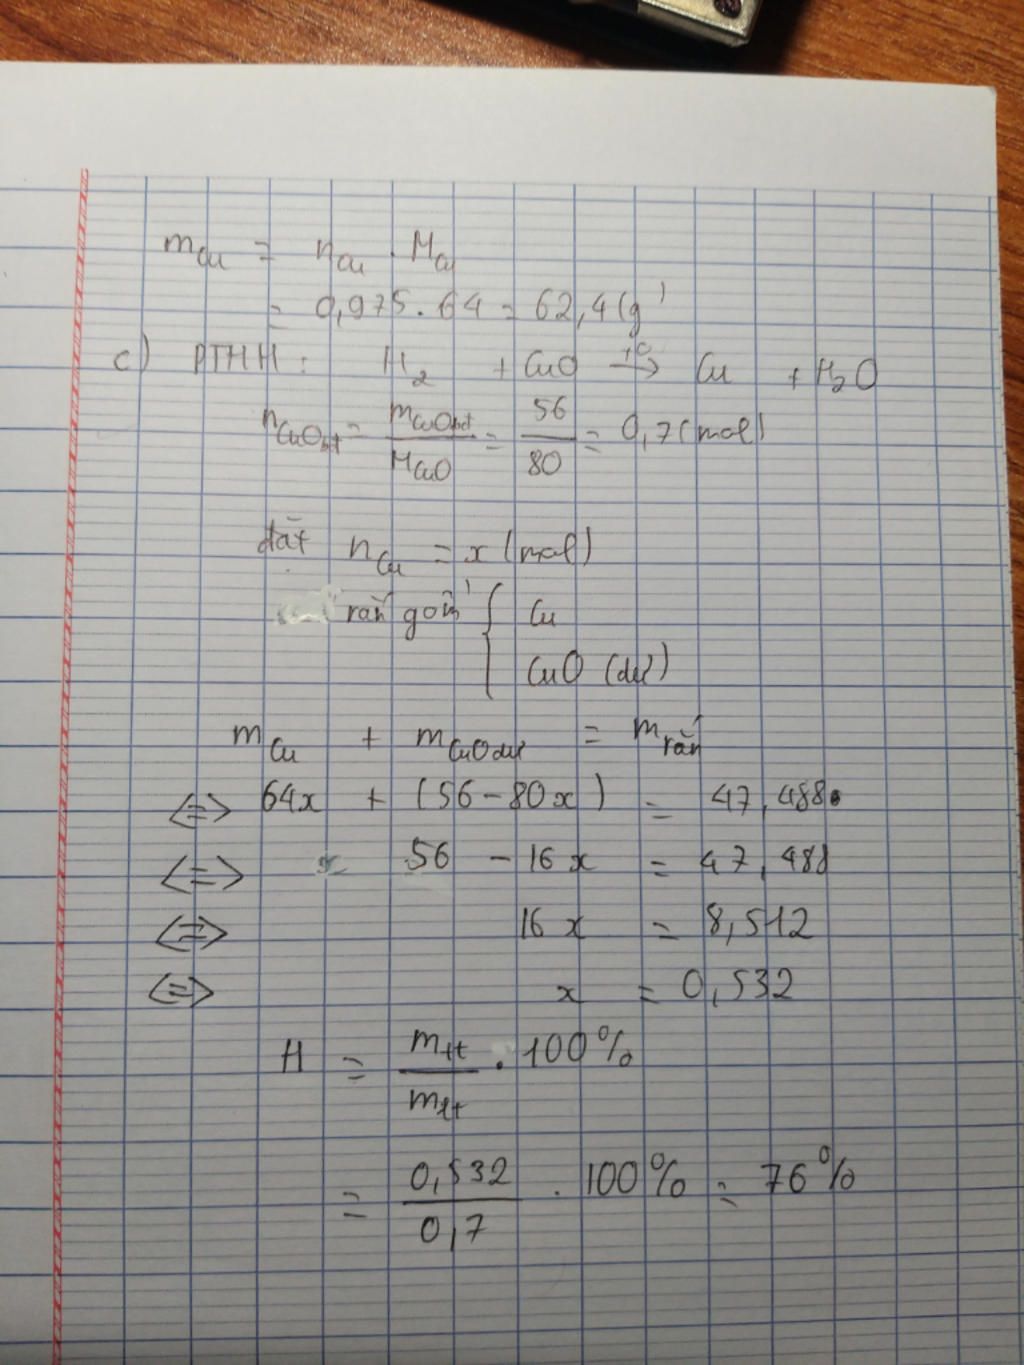 mCu = nCu . MCu
= 0,975 . 64 = 62,4 (g)
c) PTHH : H2 + CuO t°→ Cu + H2O
nCuObđ = mCuObđ / MCuO = 56 / 80 = 0,7 (mol)
đặt nCu = x (mol)
rắn gồm { Cu
CuO (dư)
mCu + mCuO dư = mrắn
<=> 64x + (56 - 80x) = 47,488
<=> 56 - 16x = 47,488
<=> 16x = 8,512
<=> x = 0,532
H = mtt / mlt . 100%
= 0,532 / 0,7 . 100% = 76%